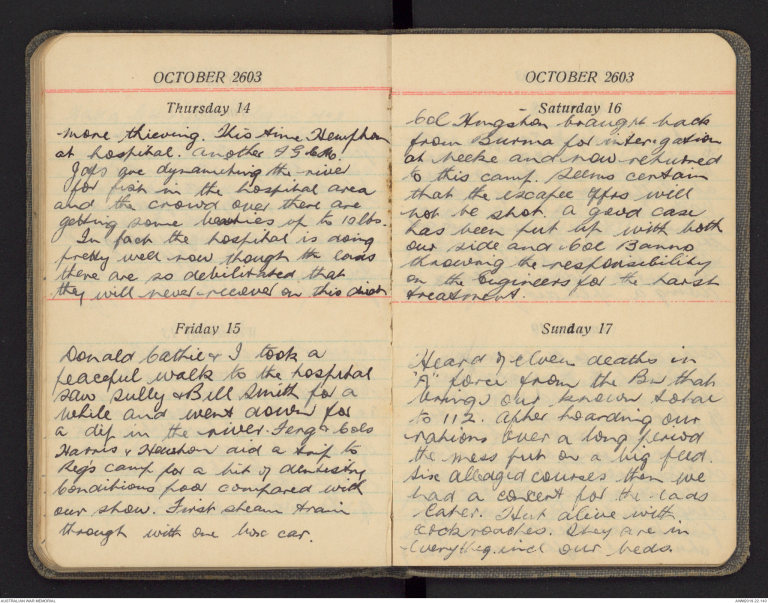 OCTOBER 2603
Thursday 14
more thieving. This time Hempham
at hospital. Another F G C M.
Japs are dynamiting the river
for fish in the hospital area
and the crowd over there are
getting some beauties up to 10 lbs.
In fact the hospital is doing
pretty well now though the lads
there are so debilitated that
they will never recover on this diet
Friday 15
Donald Cathie & I took a
peaceful walk to the hospital
saw Sully & Bill Smith for a
while and went down for
a dip in the river. Ferg & Cols
Harris & Newton did a trip to
Reg's camp for a bit of dentistry
Conditions poor compared with
our show. First steam train
through with one box car.
OCTOBER 2603
Saturday 16
Col Hingston brought back
from Burma for interigation
at Neeke and now returned
to this camp. Seems certain
that the escapee Offrs will
not be shot. A good case
has been put up with both
our side and Col Banno
throwing the responsibility
on the Engineers for the harsh
treatment.
Sunday 17
Heard of eleven deaths in
"A" force from the Bn that
brings our known total
to 112. After hoarding our
rations over a long period
the mess put on a big feed.
Six alledged courses then we
had a concert for the lads
later. Hut alive with
cockroaches. They are in
everything incl our beds.
AUSTRALIAN WAR MEMORIAL